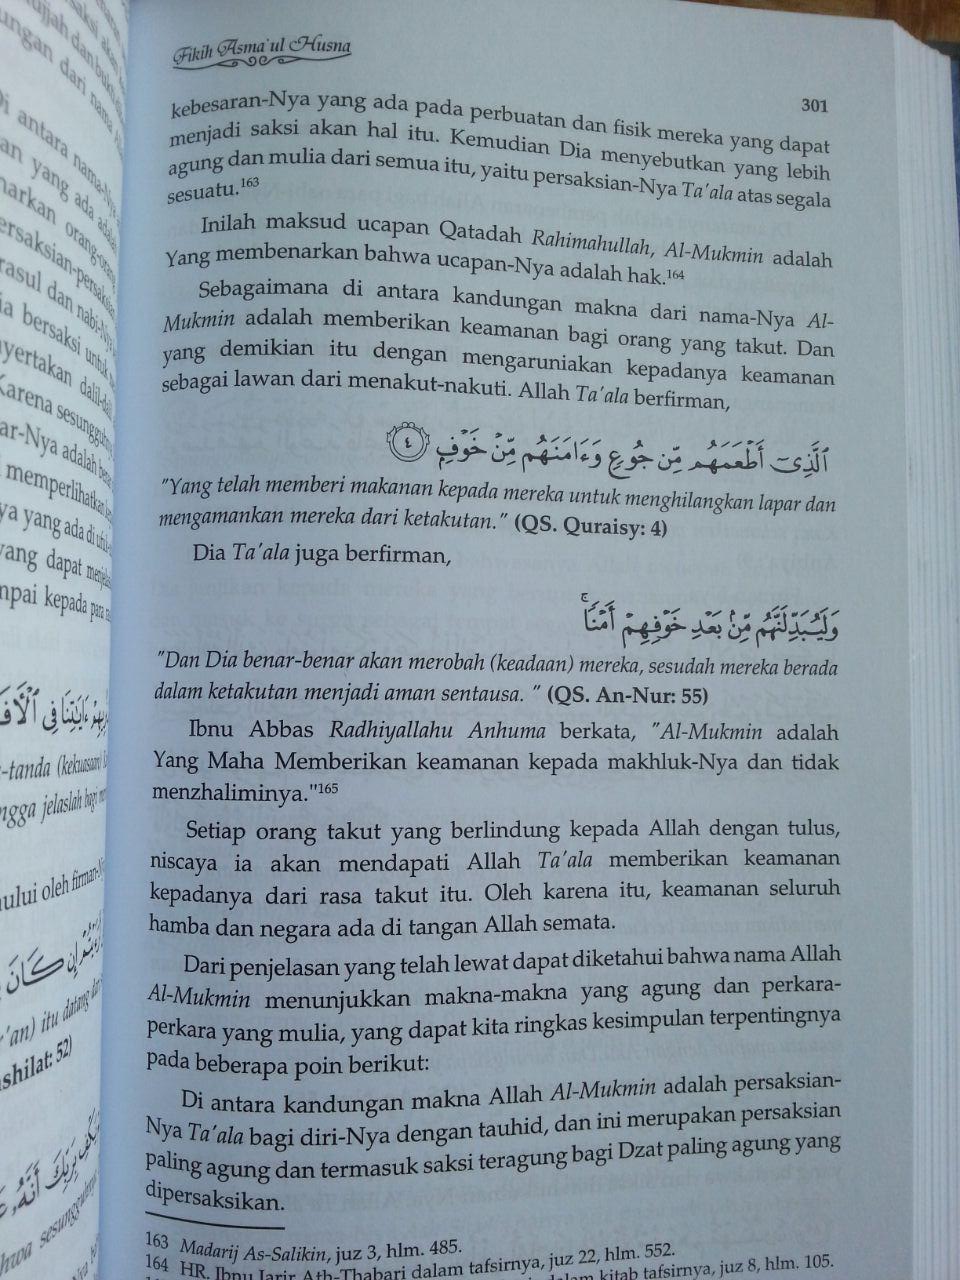 Fikih Asma'ul Husna
301
kebesaran-Nya yang ada pada perbuatan dan fisik mereka yang dapat
menjadi saksi akan hal itu. Kemudian Dia menyebutkan yang lebih
agung dan mulia dari semua itu, yaitu persaksian-Nya Ta'ala atas segala
sesuatu.163
Inilah maksud ucapan Qatadah Rahimahullah, Al-Mukmin adalah
Yang membenarkan bahwa ucapan-Nya adalah hak.164
Sebagaimana di antara kandungan makna dari nama-Nya Al-
Mukmin adalah memberikan keamanan bagi orang yang takut. Dan
yang demikian itu dengan mengaruniakan kepadanya keamanan
sebagai lawan dari menakut-nakuti. Allah Ta'ala berfirman,
ٱلَّذِىٓ أَطْعَمَهُم مِّن جُوعٍ وَءَامَنَهُم مِّنْ خَوْفٍۭ ٤
"Yang telah memberi makanan kepada mereka untuk menghilangkan lapar dan
mengamankan mereka dari ketakutan." (QS. Quraisy: 4)
Dia Ta'ala juga berfirman,
وَلَيُبَدِّلَنَّهُم مِّنۢ بَعْدِ خَوْفِهِمْ أَمْنًا ۚ
"Dan Dia benar-benar akan merobah (keadaan) mereka, sesudah mereka berada
dalam ketakutan menjadi aman sentausa. " (QS. An-Nur: 55)
Ibnu Abbas Radhiyallahu Anhuma berkata, "Al-Mukmin adalah
Yang Maha Memberikan keamanan kepada makhluk-Nya dan tidak
menzhaliminya."165
Setiap orang takut yang berlindung kepada Allah dengan tulus,
niscaya ia akan mendapati Allah Ta'ala memberikan keamanan
kepadanya dari rasa takut itu. Oleh karena itu, keamanan seluruh
hamba dan negara ada di tangan Allah semata.
Dari penjelasan yang telah lewat dapat diketahui bahwa nama Allah
Al-Mukmin menunjukkan makna-makna yang agung dan perkara-
perkara yang mulia, yang dapat kita ringkas kesimpulan terpentingnya
pada beberapa poin berikut:
Di antara kandungan makna Allah Al-Mukmin adalah persaksian-
Nya Ta'ala bagi diri-Nya dengan tauhid, dan ini merupakan persaksian
paling agung dan termasuk saksi teragung bagi Dzat paling agung yang
dipersaksikan.
163 Madarij As-Salikin, juz 3, hlm. 485.
164 HR. Ibnu Jarir Ath-Thabari dalam tafsirnya, juz 22, hlm. 552.
dalam kitab tafsirnya, juz 8, hlm. 105.